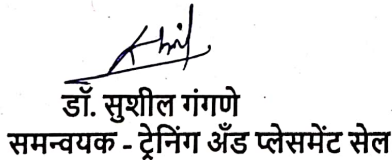 डॉ. सुशील गंगणे
समन्वयक - ट्रेनिंग अँड प्लेसमेंट सेल